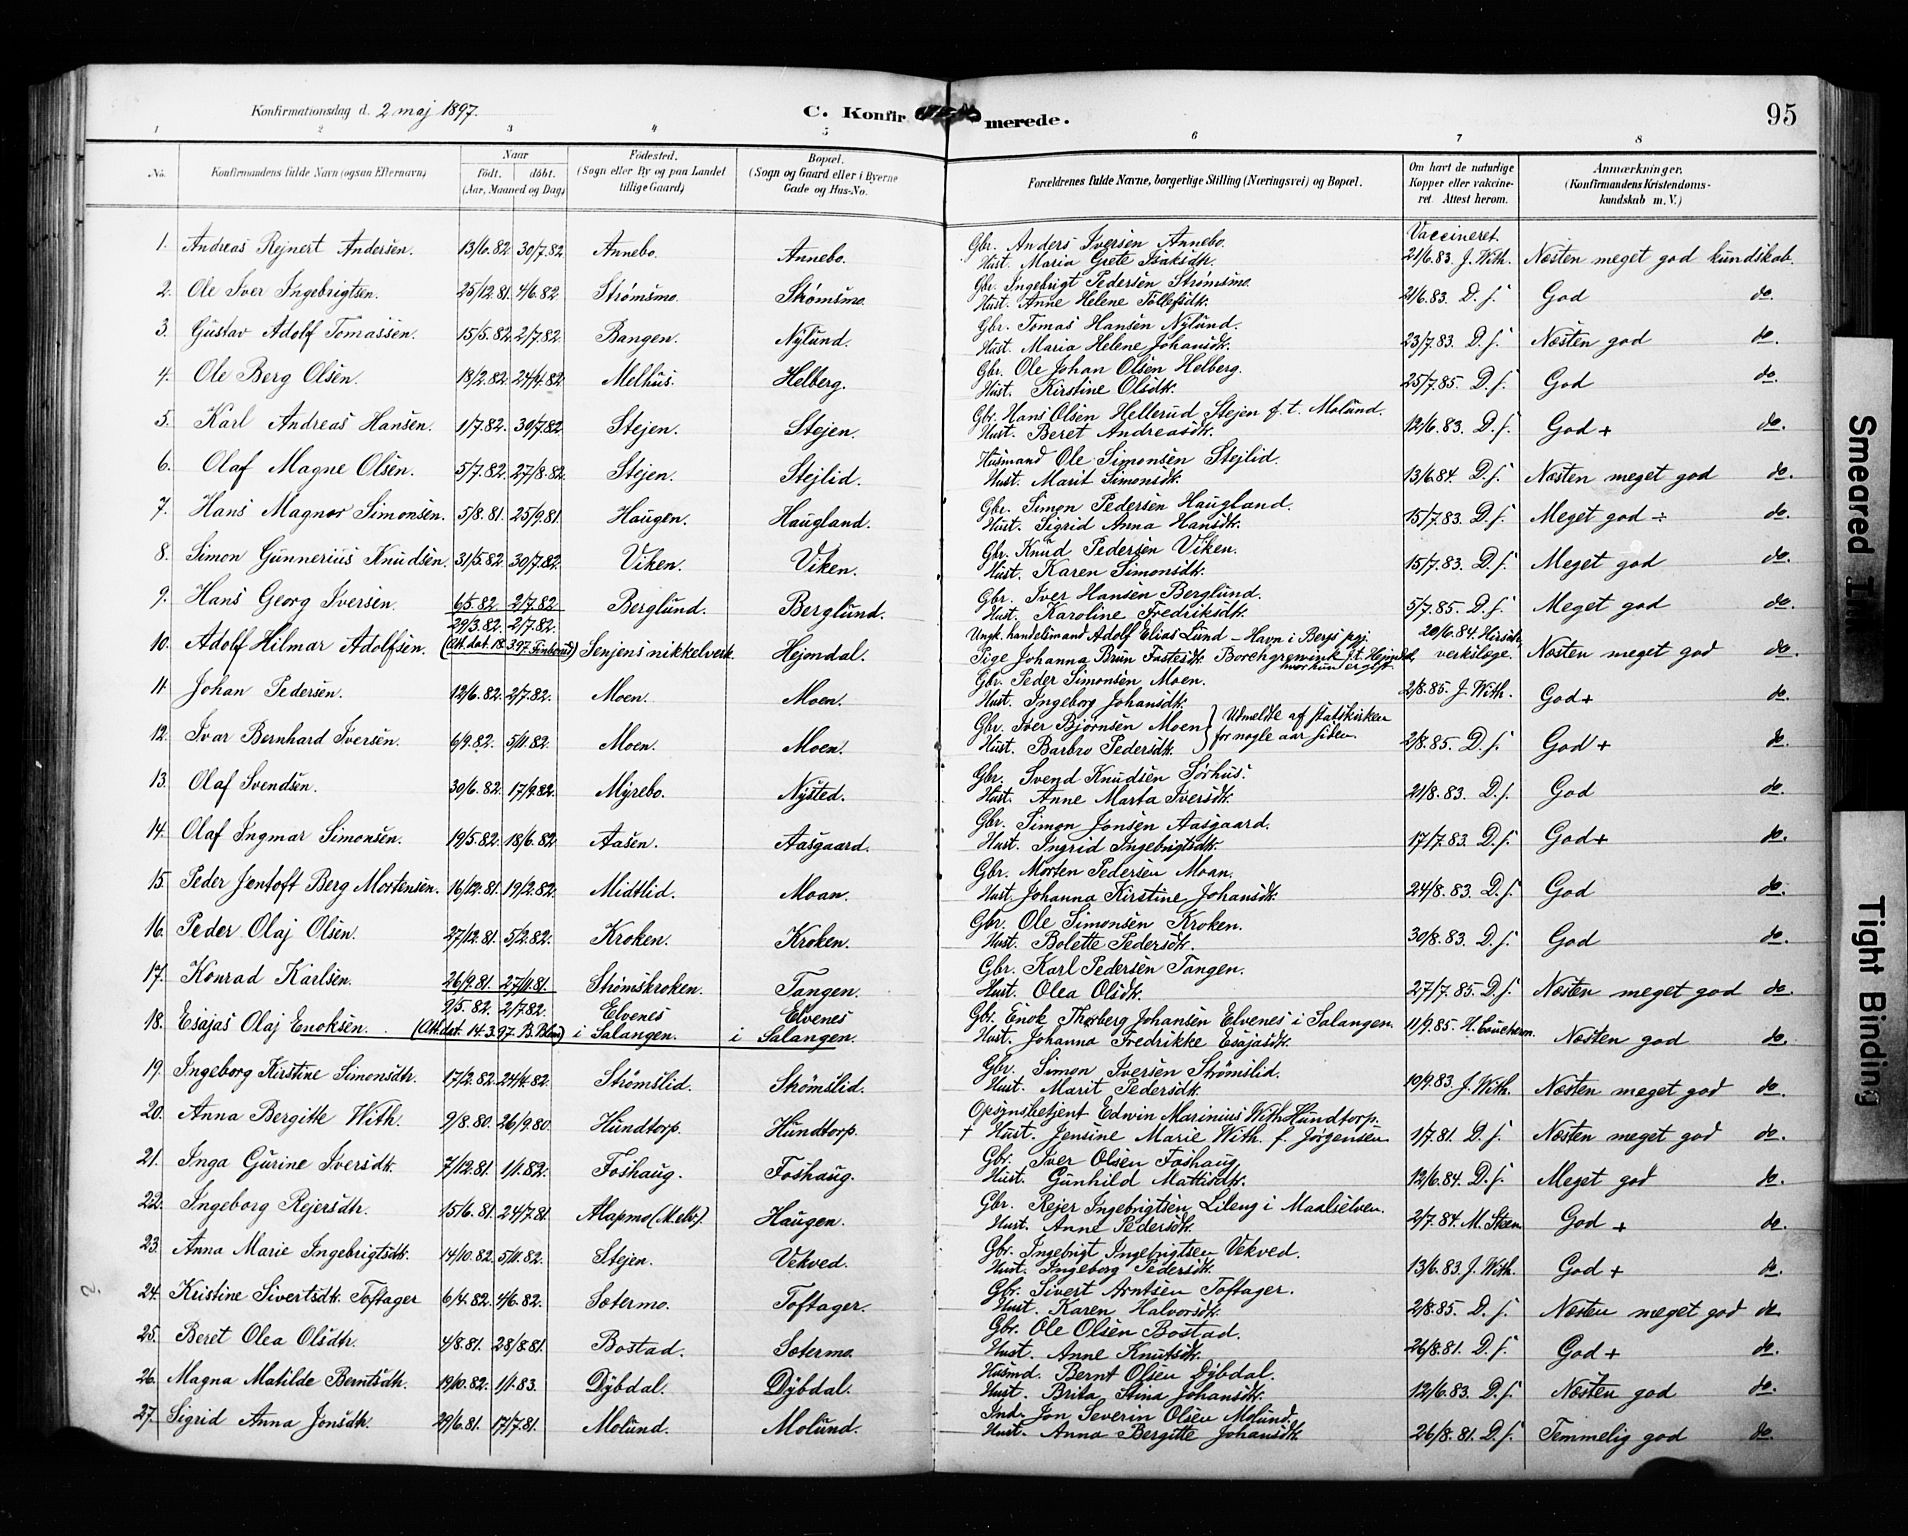 Konfirmationsdag d. 2 maj 1897.
C. Konfir
merede.
95
1 2 3 4 5 6 7 8
No. Konfirmandens fulde Navn (ogsaa Efternavn) Naar født. døbt. (Aar, Maaned og Dag) Fødested. (Sogn eller By og paa Landet tillige Gaard) Bopæl. (Sogn og Gaard eller i Byerne Gade og Hus-No. Forældrenes fulde Navne, borgerlige Stilling (Næringsvei) og Bopæl. Om havt de naturlige Kopper eller vakcineret. Attest herom. Anmærkninger. (Konfirmandens Kristendomskundskab m. V.)
Vaccineret.
1. Andreas Rejnert Andersen. 13/6.82. 30/7.82. Annebo. Annebo. Gbr. Anders Iversen Annebo. Hust. Maria Grete Isaksdtr. 21/6.83. J. With. Næsten meget god kundskab.
2. Ole Iver Ingebrigtsen. 25/12.81. 4/6.82. Strømsmo. Strømsmo. Gbr. Ingebrigt Pedersen Strømsmo. Hust. Anne Helene Tollefsdtr. 21/6.83. D. s. God do.
3. Gustav Adolf Tomassen. 15/5.82. 2/7.82. Bangen. Nylund. Gbr. Tomas Hansen Nylund. Hust. Maria Helene Johansdtr. 23/7.83. D. s. Næsten god do.
4. Ole Berg Olsen. 18/2.82. 24/4.82. Melhus. Helberg. Gbr. Ole Johan Olsen Helberg. Hust. Kirstine Olsdtr. 25/7.85. D. s. God do.
5. Karl Andreas Hansen. 1/7.82. 30/7.82. Stejen. Stejen. Gbr. Hans Olsen Hellerud Stejen f. t. Molund. Hust. Beret Andreasdtr. 12/6.83. D. s. God + do.
6. Olaf Magne Olsen. 5/7.82. 27/8.82. Stejen. Stejlid. Husmand Ole Simonsen Stejlid. Hust. Marit Simonsdtr. 13/6.84. D. s. Næsten meget god do.
7. Hans Magnor Simonsen. 5/8.81. 25/9.81. Haugen. Haugland. Gbr. Simon Pedersen Haugland. Hust. Sigrid Anna Hansdtr. 15/7.83. D. s. Meget god ÷ do.
8. Simon Gunnerius Knudsen. 31/5.82. 30/7.82. Viken. Viken. Gbr. Knud Pedersen Viken. Hust. Karen Simonsdtr. 15/7.83. D. s. Meget god do.
9. Hans Georg Iversen. 6/5.82. 2/7.82. Berglund. Berglund. Gbr. Iver Hansen Berglund. Hust. Karoline Fredriksdtr. 5/7.85. D. s. Meget god do.
10. Adolf Hilmar Adolfsen. 29/3.82. 2/7.82. (Att. dat. 18.3.97. ) Senjens nikkelverk. Hejondal. Ungk. handelsmand Adolf Elias Lund - Havn i Bergs pgj. Pige Johanna Brun Fastesdtr. Borchgrevink f. t. Hejndal, 20/6.84. verkslæge. Næsten meget god do.
11. Johan Pedersen. 12/6.82. 2/7.82. Moen. Moen. Gbr. Peder Simonsen Moen. Hust. Ingeborg Johansdtr. 2/8.85. J. With. God + do.
12. Ivar Bernhard Iversen. 6/9.82. 5/11.82. Moen. Moen. Gbr. Iver Bjørnsen Moen Hust. Barbro Pedersdtr. } Udmeldte af statskirken for nogle aar siden. 2/8.85. D. s. God + do.
13. Olaf Svendsen. 30/6.82. 17/9.82. Myrebo. Nysted. Gbr. Svend Knudsen Sørhus. Hust. Anne Marta Iversdtr. 21/8.83. D. s. God do.
14. Olaf Ingmar Simonsen. 19/5.82. 18/6.82. Aasen. Aasgaard. Gbr. Simon Jonsen Aasgaard. Hust. Ingrid Ingebrigtsdtr. 17/7.83. D. s. God + do.
15. Peder Jentoft Berg Mortensen. 16/12.81. 19/2.82. Midtlid. Moan. Gbr. Morten Pedersen Moan. Hust. Johanna Kirstine Johansdtr. 24/8.83. D. s. God do.
16. Peder Olaj Olsen. 27/12.81. 5/2.82. Kroken. Kroken. Gbr. Ole Simonsen Kroken. Hust. Bolette Pedersdtr. 30/8.83. D. s. God do.
17. Konrad Karlsen. 26/9.81. 27/11.81. Strømskroken. Tangen. Gbr. Karl Pedersen Tangen. Hust. Olea Olsdtr. 27/7.85. D. s. Næsten meget god do.
18. Esajas Olaj Enoksen. 9/5.82. 2/7.82. (Att. dat. 14.3.97. B. ) Elvenes i Salangen. Elvenes i Salangen. Gbr. Enok Thorberg Johansen Elvenes i Salangen. Hust. Johanna Fredrikke Esajasdtr. 11/9.85. H. Næsten god do.
19. Ingeborg Kirstine Simonsdtr. 17/2.82. 24/4.82. Strømslid. Strømslid. Gbr. Simon Iversen Strømslid. Hust. Marit Pedersdtr. 19/9.83. J. With. Næsten meget god do.
20. Anna Bergitte With. 9/8.80. 26/9.80. Hundtorp. Hundtorp. Opsynsbetjent Edwin Marinius With Hundtorp. + Hust. Jensine Marie With. f. Jørgensen 1/7.81. D. s. Næsten meget god do.
21. Inga Gurine Iversdtr. 7/12.81. 1/1.82. Foshaug. Foshaug. Gbr. Iver Olsen Foshaug. Hust. Gunhild Mattisdtr. 12/6.84. D. s. Meget god do.
22. Ingeborg Rejersdtr. 15/6.81. 24/7.81. Alapmo (M.elv.). Haugen. Gbr. Rejer Ingebrigtsen Lileng i Maalselven. Hust. Anne Pedersdtr. 2/7.84. M. Steen God + do.
23. Anna Marie Ingebrigtsdtr. 14/10.82. 5/11.82. Stejen. Vekved. Gbr. Ingebrigt Ingebrigtsen Vekved. Hust. Ingeborg Pedersdtr. 13/6.83. J. With. God + do.
24. Kristine Sivertsdtr. Toftager 6/4.82. 4/6.82. Sætermo. Toftager. Gbr. Sivert Arntsen Toftager. Hust. Karen Halvorsdtr. 2/8.85. D. s. Næsten meget god do
25. Beret Olea Olsdtr. 4/8.81. 28/8.81. Bostad. Sætermo. Gbr. Ole Olsen Bostad. Hust. Anne Knutsdtr. 26/8.81. D. s. God + do.
26. Magna Matilde Berntsdtr. 19/10.82. 1/1.83. Dybdal. Dybdal. Husmd. Bernt Olsen Dybdal. Hust. Brita Stina Johansdtr. 12/6.83. D. s. Næsten god do.
27. Sigrid Anna Jonsdtr. 29/6.81. 17/7.81. Molund. Molund. Ind. Jon Severin Olsen Molund. Hust. Anna Bergitte Johansdtr. 26/8.81. D. s. Temmelig god do.
2.
Smeared
Tight Binding